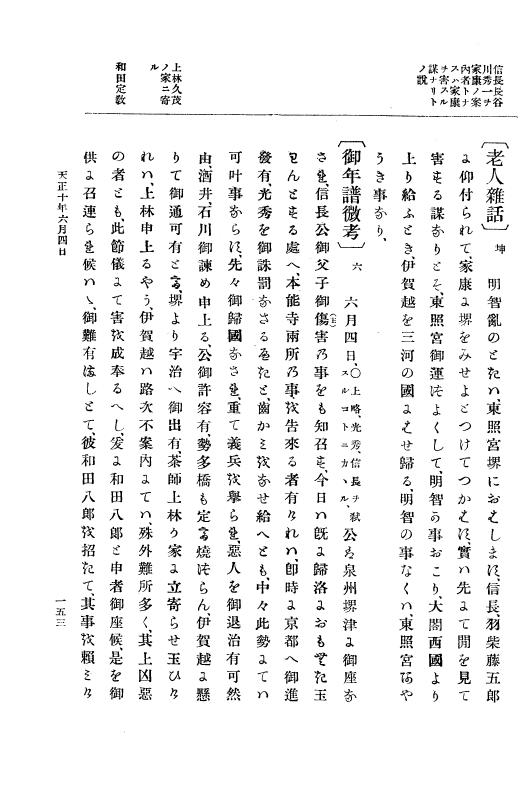 信長長谷
川秀一ヲ
家康ノ案
內者トナ
スハ家康
ヲ害スル
謀ナリト
ノ說
〔老人雜話〕坤 明智亂のときハ、東照宮堺におはします、信長、羽柴藤五郎
に仰付られて、家康に堺をみせよとつけてつかハす、實ハ先にて間を見て
害する謀なりとそ、東照宮御運つよくして、明智の事おこり、大閤西國より
上り給ふとき、伊賀越を三河の國にはせ歸る、明智の事なくハ、東照宮あや
うき事なり、
〔御年譜微考〕六 六月四日、〇上略、光秀、信長ヲ弑スルコトニカヽル、公は泉州堺津に御座な
され、信長公御父子御傷害の事をも知召す、今日ハ既に歸洛におもむき玉
はんとする處へ、本能寺兩所の事を告來る者有けれハ、卽時に京都へ御進
發有、光秀を御誅罰なさるへきと、齒かミをなせ給へとも、中々此勢にてハ
可叶事ならす、先々御歸國なされ、重て義兵を擧られ、惡人を御退治有可然
由、酒井、石川御諫め申上る、公御許容有、勢多橋も定て燒つらん、伊賀越に懸
上林久茂
ノ家ニ寄
ル
りて御通可有とて、堺より宇治へ御出有、茶師上林か家に立寄らせ玉ひけ
れハ、上林申上るやう、伊賀越ハ路次不案內にてハ、殊外難所多く、其上凶惡
和田定敎
の者とも、此節儀にて害を成奉るへし、爰に和田八郎と申者御座候、是を御
供に召連られ候ハヽ、御難有ましとて、彼和田八郎を招きて、其事を賴ミけ
天正十年六月四日
一五三